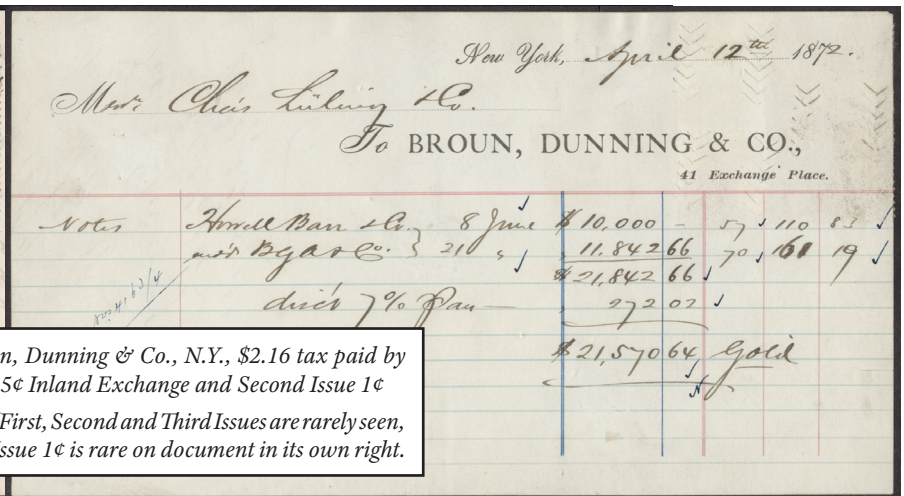 New York, April 12th 1872.
Messrs Chas Lüling & Co.
To BROUN, DUNNING & CO.,
41 Exchange Place.
Notes Howell Barr & Co. 8 June $ 10,000 – 57 110 83
21 " 11.842 66 70 161 19
$ 21,842 66
disct 7% 272 02
$ 21,570 64 Gold
n, Dunning & Co., N.Y., $2.16 tax paid by
5¢ Inland Exchange and Second Issue 1¢
First, Second and Third Issues are rarely seen,
ssue 1¢ is rare on document in its own right.